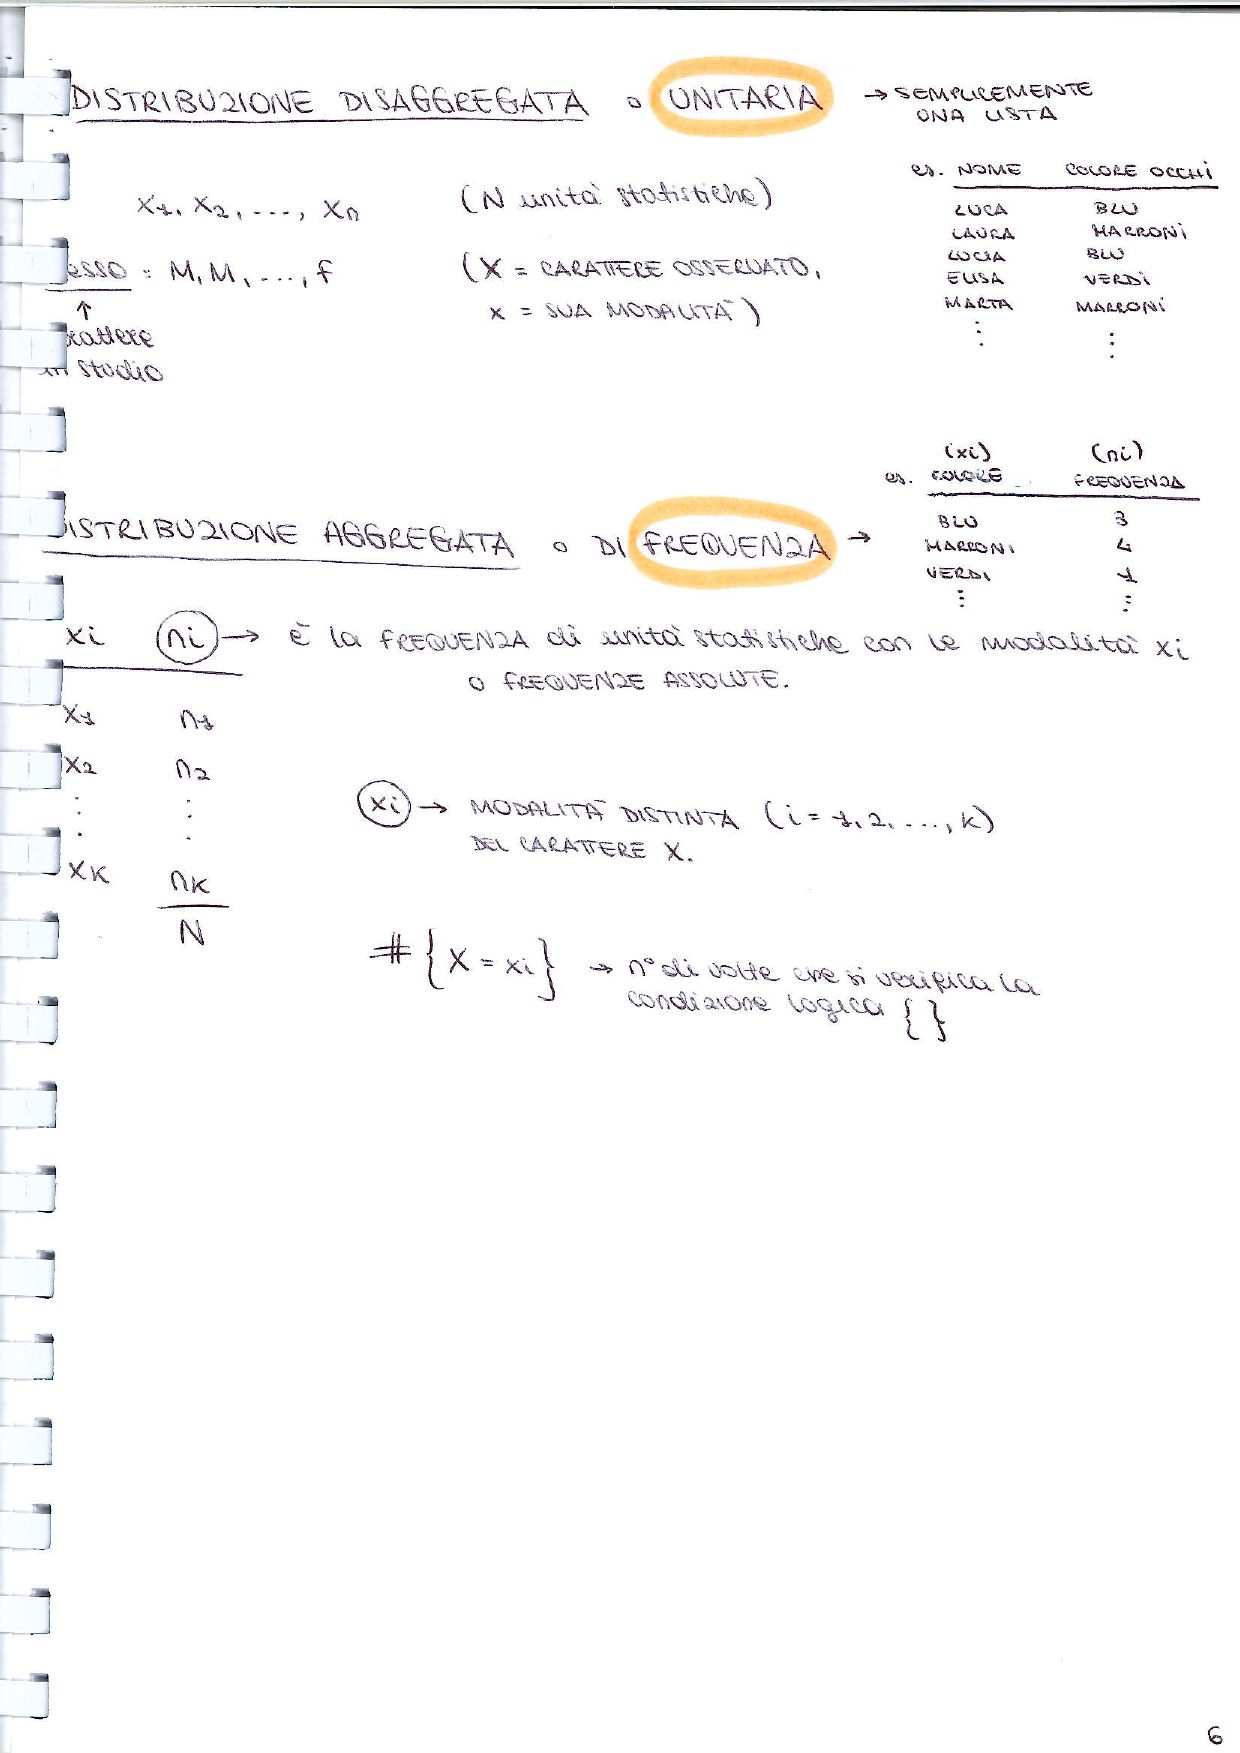 DISTRIBUZIONE DISAGGREGATA o UNITARIA → SEMPLICEMENTE
UNA LISTA
es. NOME COLORE OCCHI
X1, X2, ..., Xn (N unità statistiche)
LUCA BLU
LAURA MARRONI
LUCIA BLU
esso : M, M, ..., f (X = CARATTERE OSSERVATO,
ELISA VERDI
↑ x = SUA MODALITÀ)
MARTA MARRONI
⋮ ⋮
rattere
in studio
(xi) (ni)
es. COLORE FREQUENZA
BLU 3
ISTRIBUZIONE AGGREGATA o DI FREQUENZA →
MARRONI 4
VERDI 1
⋮ ⋮
xi ni → è la FREQUENZA di unità statistiche con le modalità xi
o FREQUENZE ASSOLUTE.
X1 n1
X2 n2
⋮ ⋮
xi → MODALITÀ DISTINTA (i = 1, 2, ..., K)
DEL CARATTERE X.
XK nK
N
# {X = xi} → n° di volte che si verifica la
condizione logica { }
6